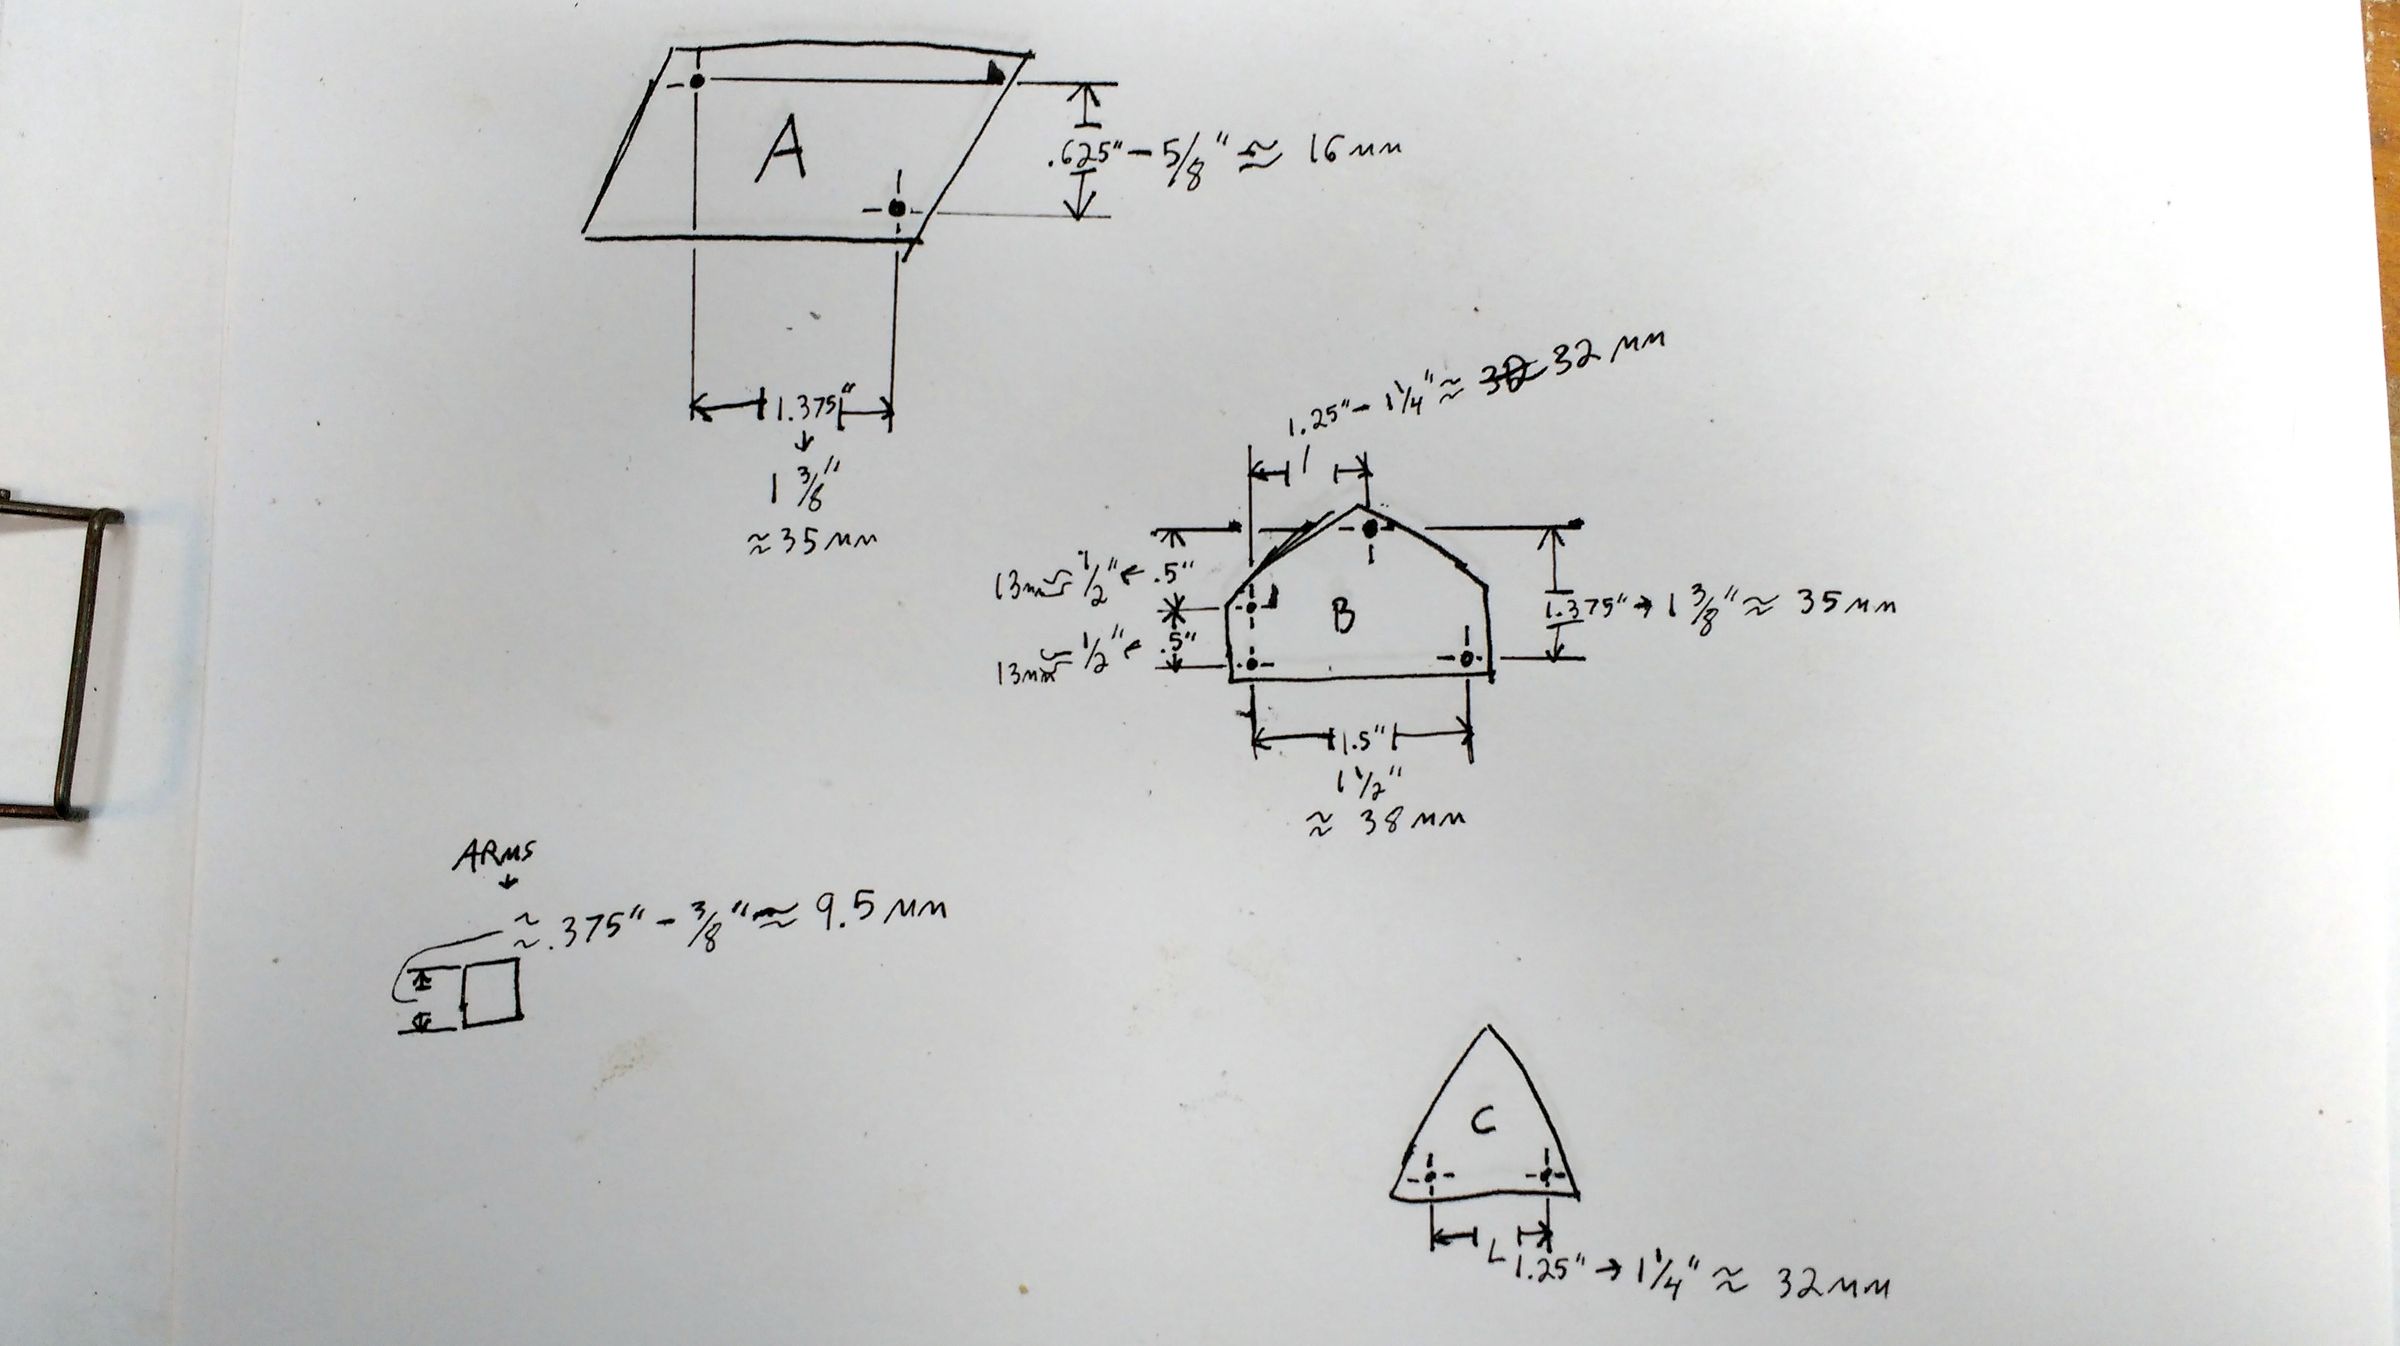 A
.625" - 5/8" ≈ 16mm
1.375"
↓
1 3/8"
≈ 35mm
1.25" - 1 1/4" ≈ 32 mm
13mm ≈ 1/2" ← .5"
B
1.375" → 1 3/8" ≈ 35mm
13mm ≈ 1/2" ← .5"
1.5"
1 1/2"
≈ 38mm
ARMS
↓
≈ .375" - 3/8" ≈ 9.5mm
C
1.25" → 1 1/4" ≈ 32mm